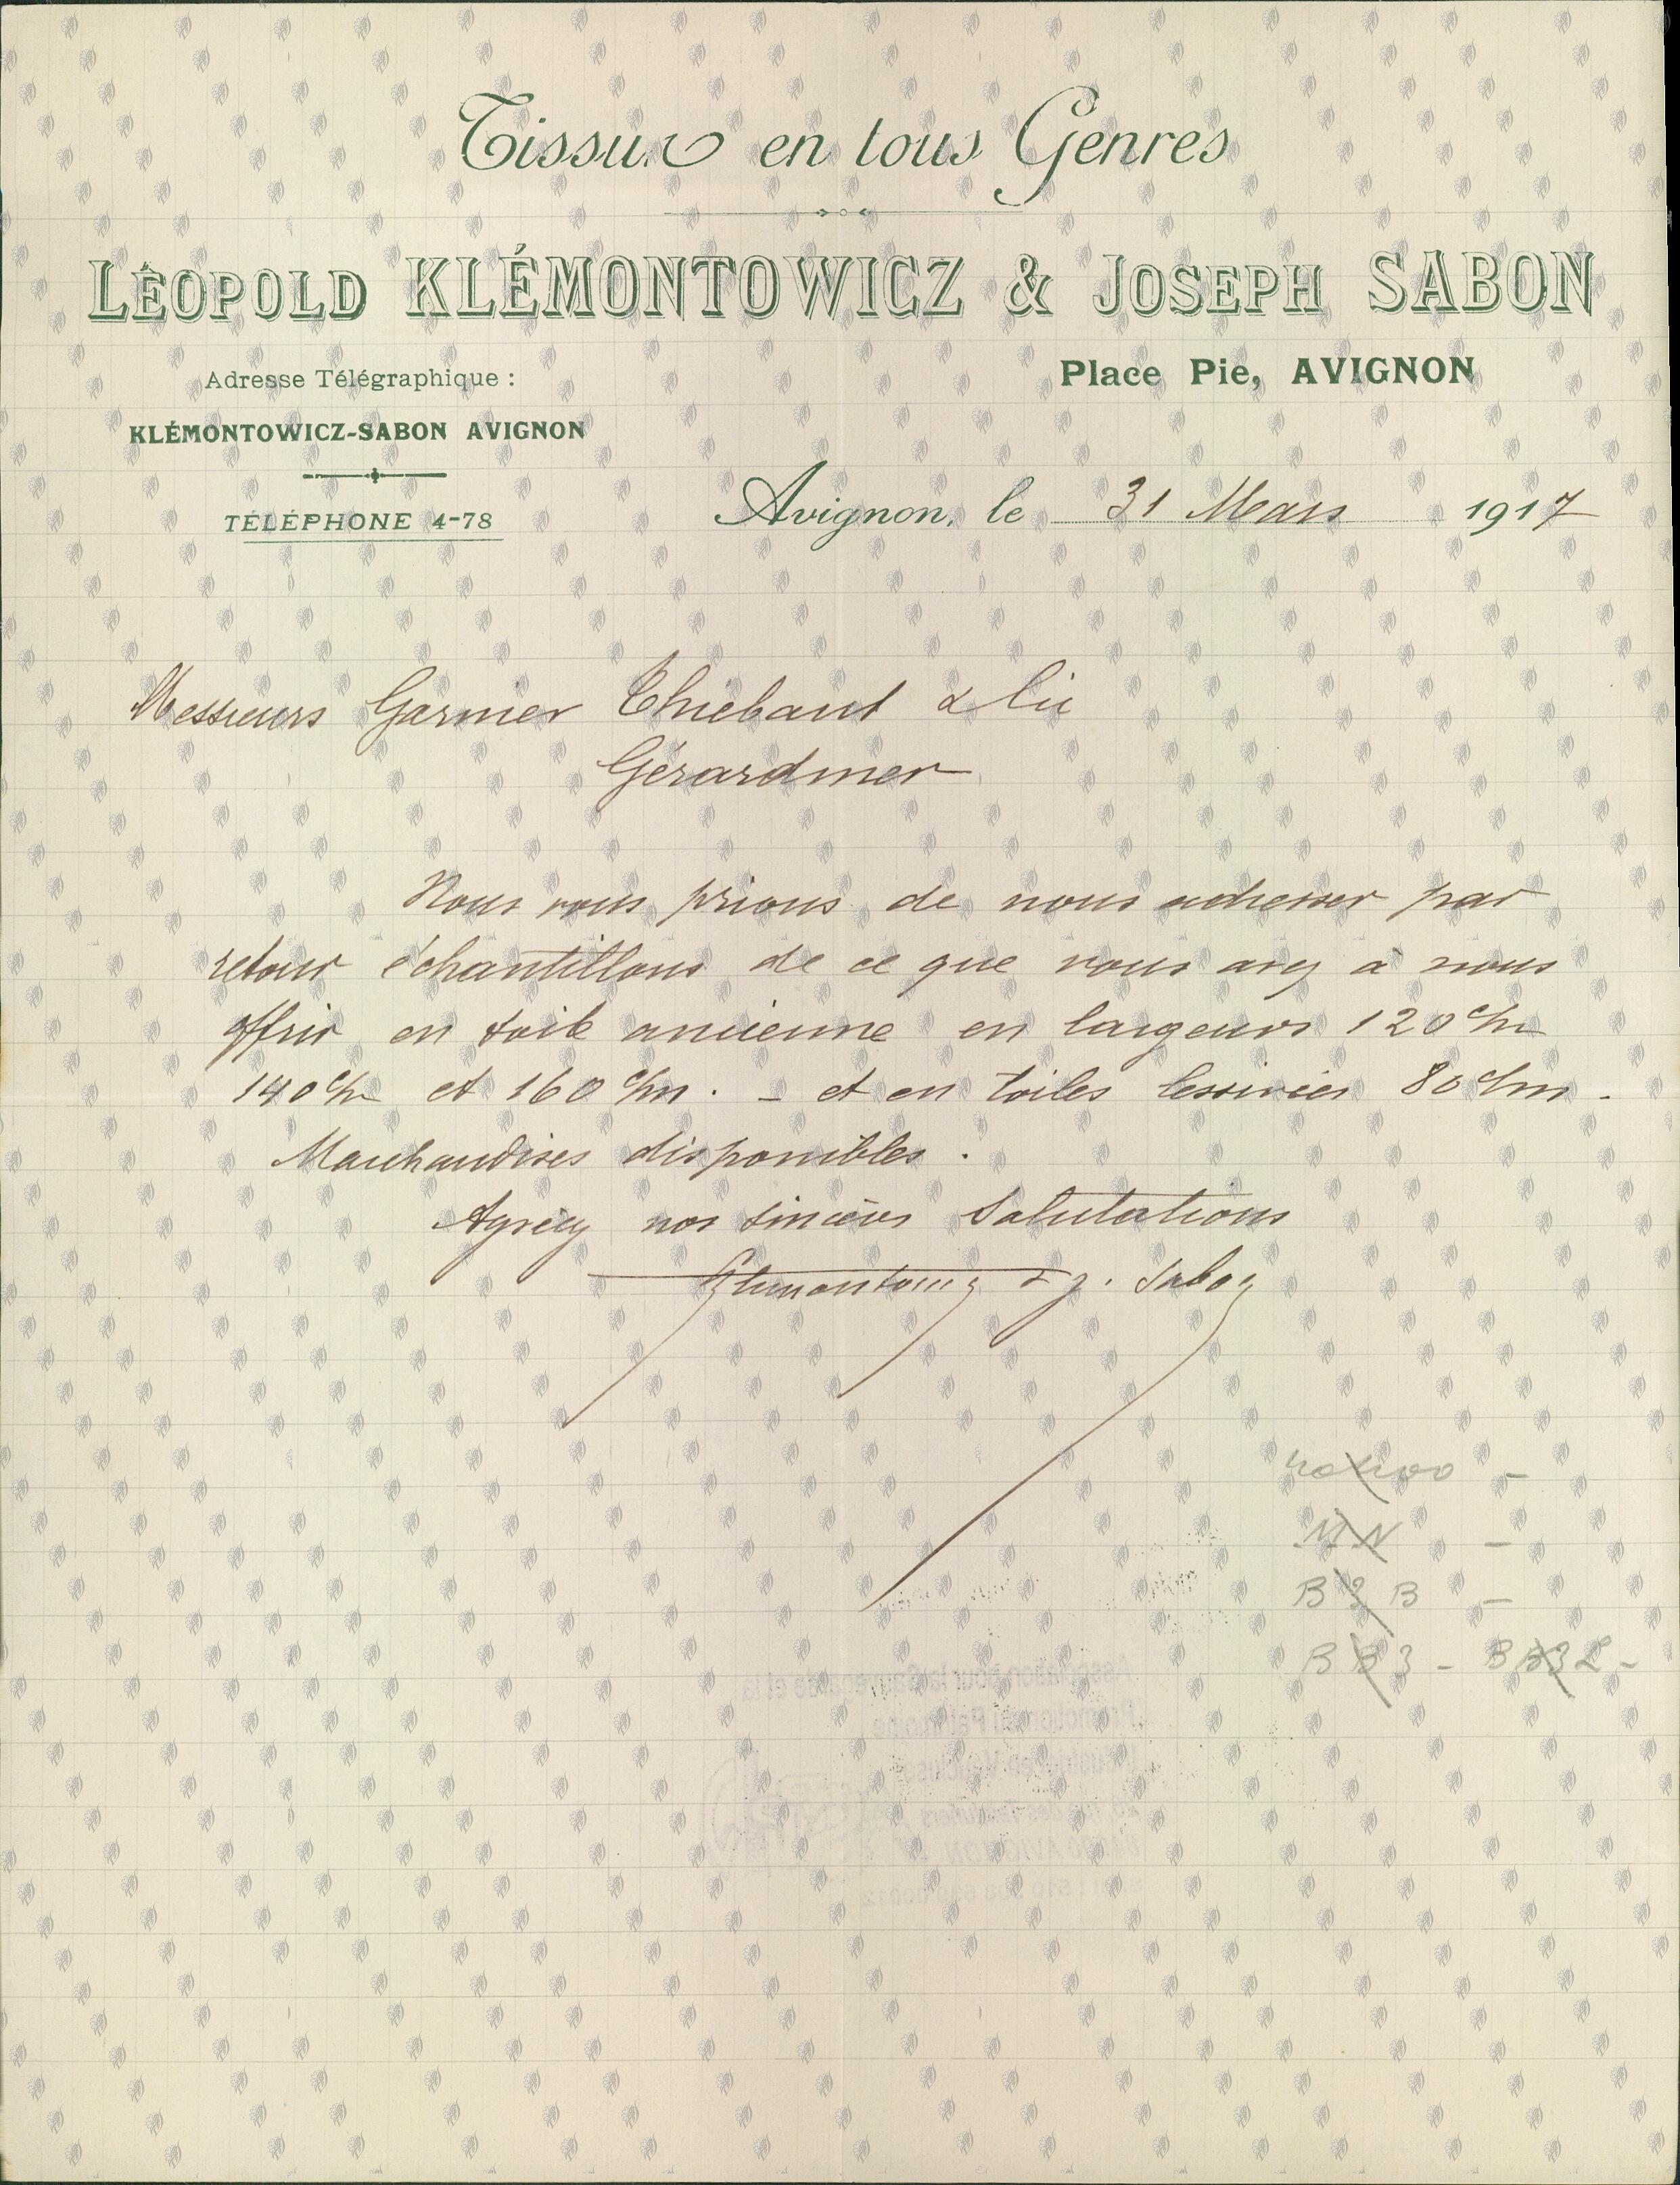 Tissus en tous Genres
LÉOPOLD KLÉMONTOWICZ & JOSEPH SABON
Adresse Télégraphique :
Place Pie, AVIGNON
KLÉMONTOWICZ-SABON AVIGNON
TÉLÉPHONE 4-78
Avignon, le 31 Mars 1917
Messieurs Garnier Thiebaut & Cie
Gérardmer
Nous vous prions de nous adresser par
retour échantillons de ce que vous avez à nous
offrir en toile ancienne en largeurs 120 c/m
140 c/m et 160 c/m. - et en toiles lessivées 80 c/m -
Marchandises disponibles.
Agréez nos sincères Salutations
Klemontowicz & J. Sabon
B 3 B -
B B 3 - B B 3 L -
Association pour la Sauvegarde et la
Promotion du Patrimoine
84000 AVIGNON